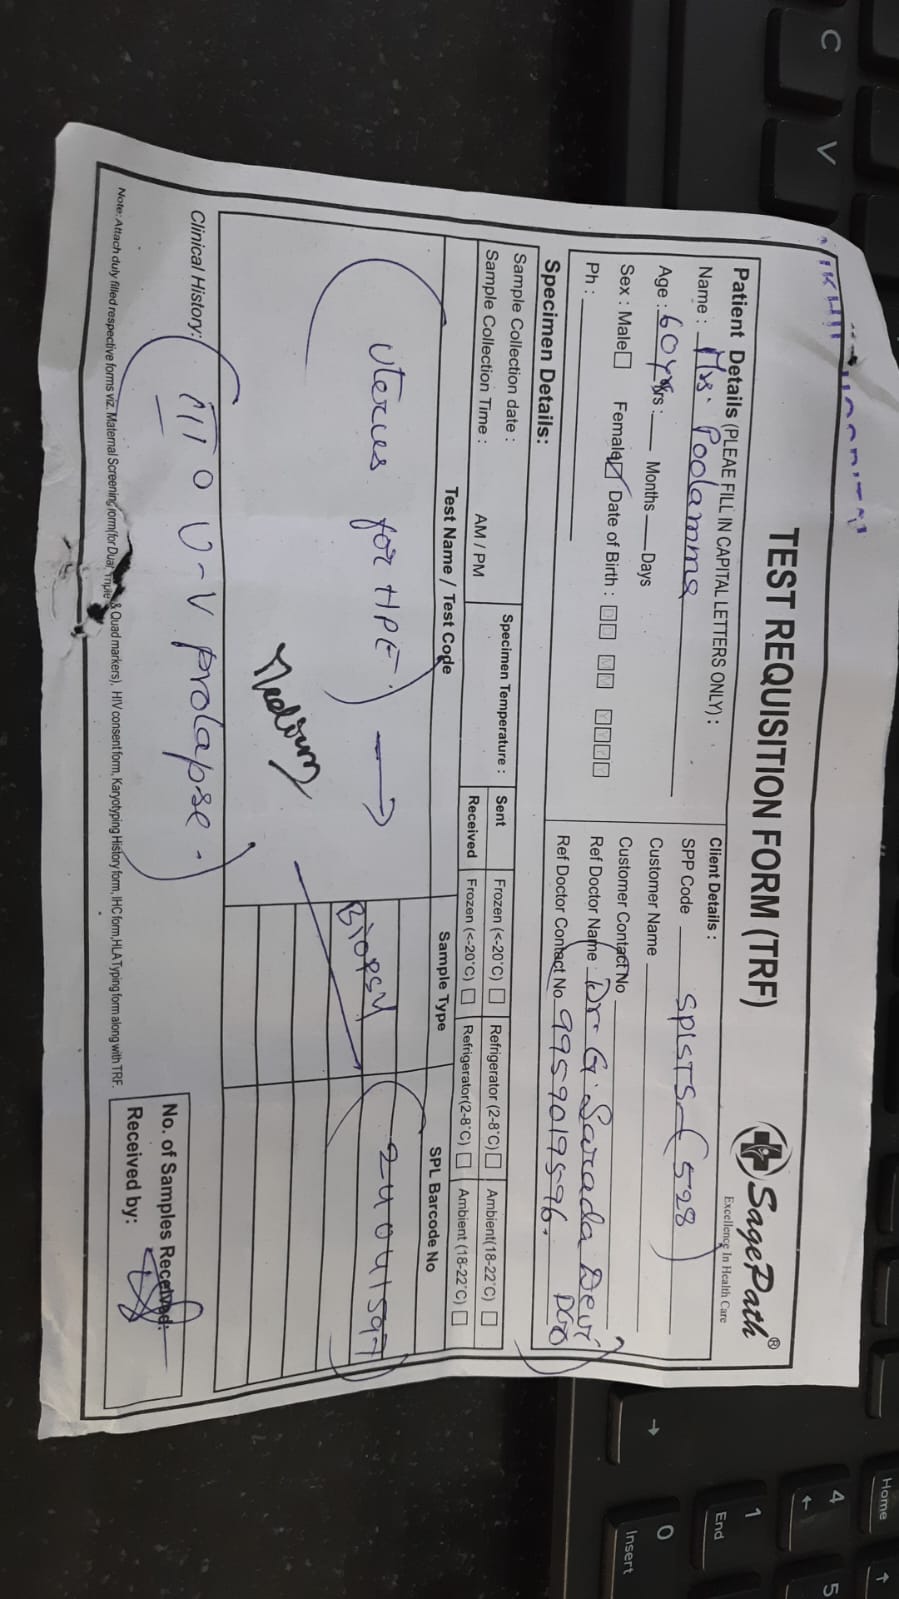 TEST REQUISITION FORM (TRF)
SagePath®
Excellence In Health Care
Patient Details (PLEAE FILL IN CAPITAL LETTERS ONLY) :
Name : Mrs. Poolamma
Age : 60 Yrs : Months Days
Sex : Male Female Date of Birth : DD MM YYYY
Ph :
Client Details :
SPP Code SPLSTS-(528)
Customer Name
Customer Contact No
Ref Doctor Name Dr G. Sarada Devi
DGO
Ref Doctor Contact No. 9959019596.
Specimen Details:
Sample Collection date :
Sample Collection Time : AM / PM
Specimen Temperature :
Sent Frozen (<-20°C) Refrigerator (2-8°C) Ambient(18-22°C)
Received Frozen (<-20°C) Refrigerator(2-8°C) Ambient (18-22°C)
Test Name / Test Code Sample Type SPL Barcode No
Uterus for HPE. Biopsy 24041597
Medium
Clinical History: III° U-V prolapse.
No. of Samples Received:
Received by:
Note: Attach duly filled respective forms viz. Maternal Screening form(for Dual, Triple & Quad markers), HIV consent form, Karyotyping History form, IHC form,HLA Typing form along with TRF.